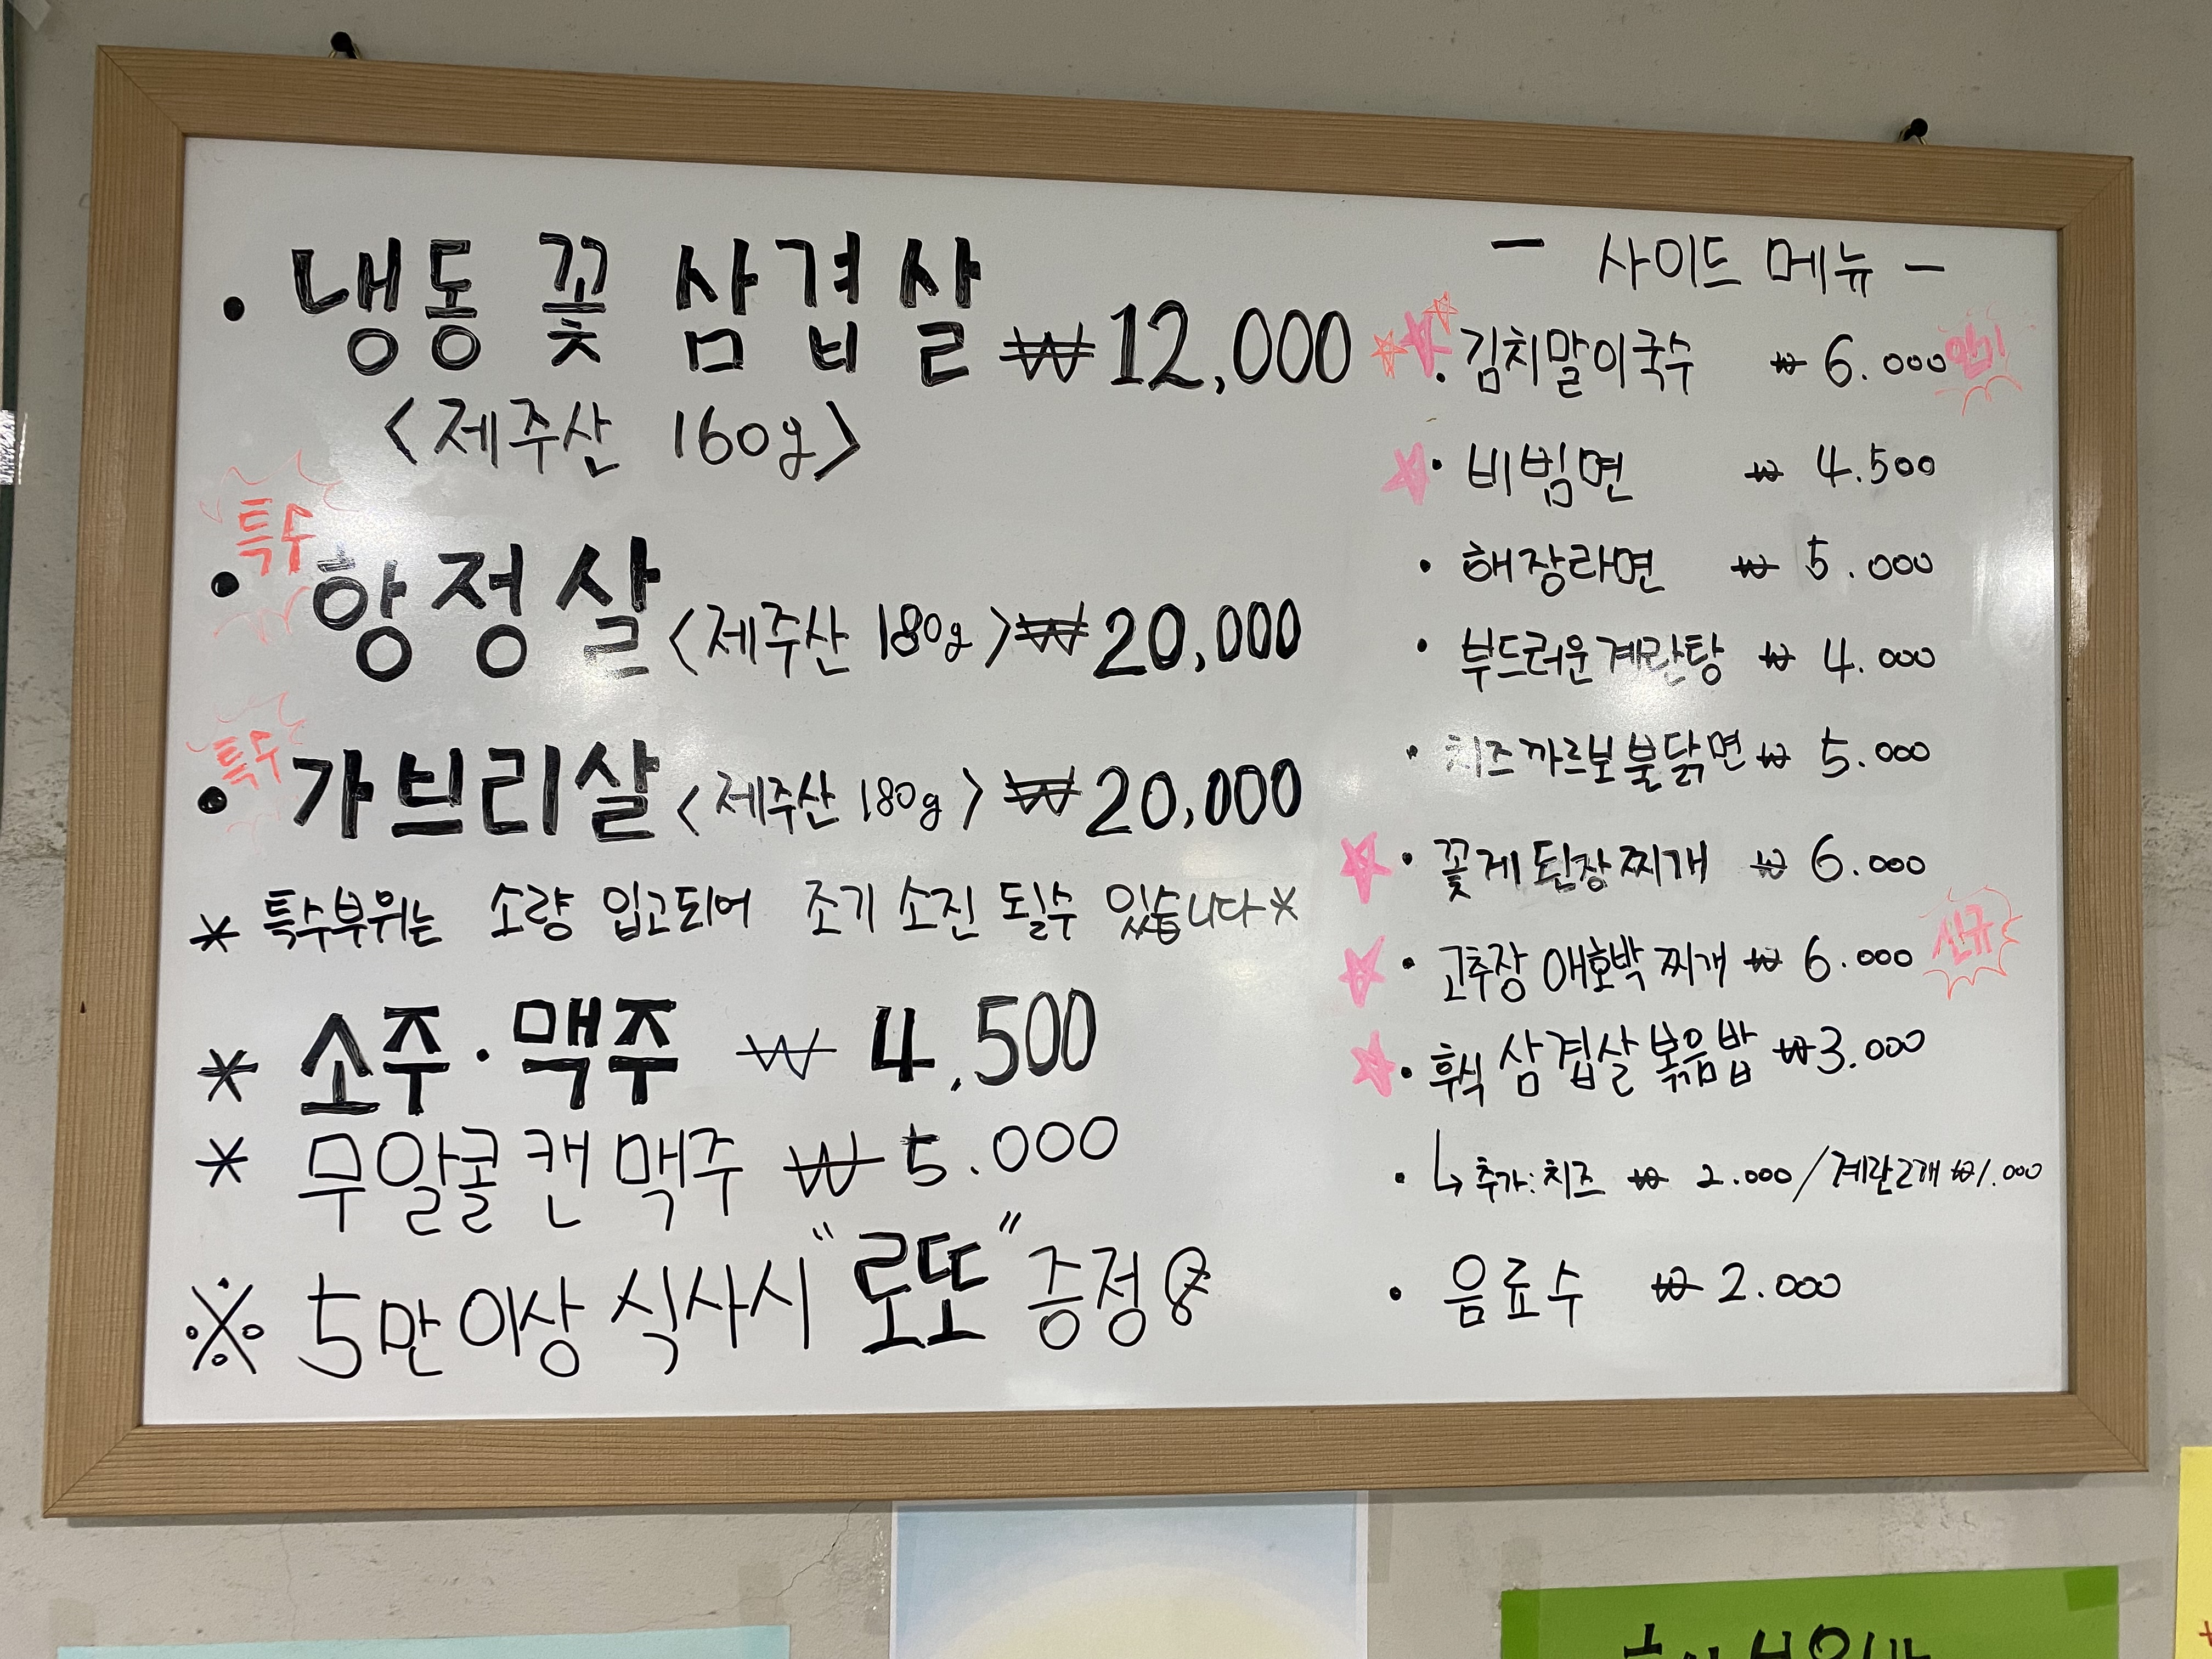 • 냉동 꽃 삼겹살 ₩12,000
<제주산 160g>
특수
• 항정살 <제주산 180g> ₩20,000
특수
• 가브리살 <제주산 180g> ₩20,000
* 특수부위는 소량 입고되어 조기 소진 될수 있습니다*
* 소주·맥주 ₩ 4,500
* 무알콜 캔 맥주 ₩ 5.000
※ 5만 이상 식사시 "로또" 증정
- 사이드 메뉴 -
• 김치말이국수 ₩ 6.000 인기
• 비빔면 ₩ 4.500
• 해장라면 ₩ 5.000
• 부드러운 계란탕 ₩ 4.000
• 치즈 까르보 불닭면 ₩ 5.000
• 꽃게 된장 찌개 ₩ 6.000
• 고추장 애호박 찌개 ₩ 6.000 신규
• 후식 삼겹살 볶음밥 ₩3.000
• ↳ 추가: 치즈 ₩ 2.000 / 계란2개 ₩1.000
• 음료수 ₩ 2.000